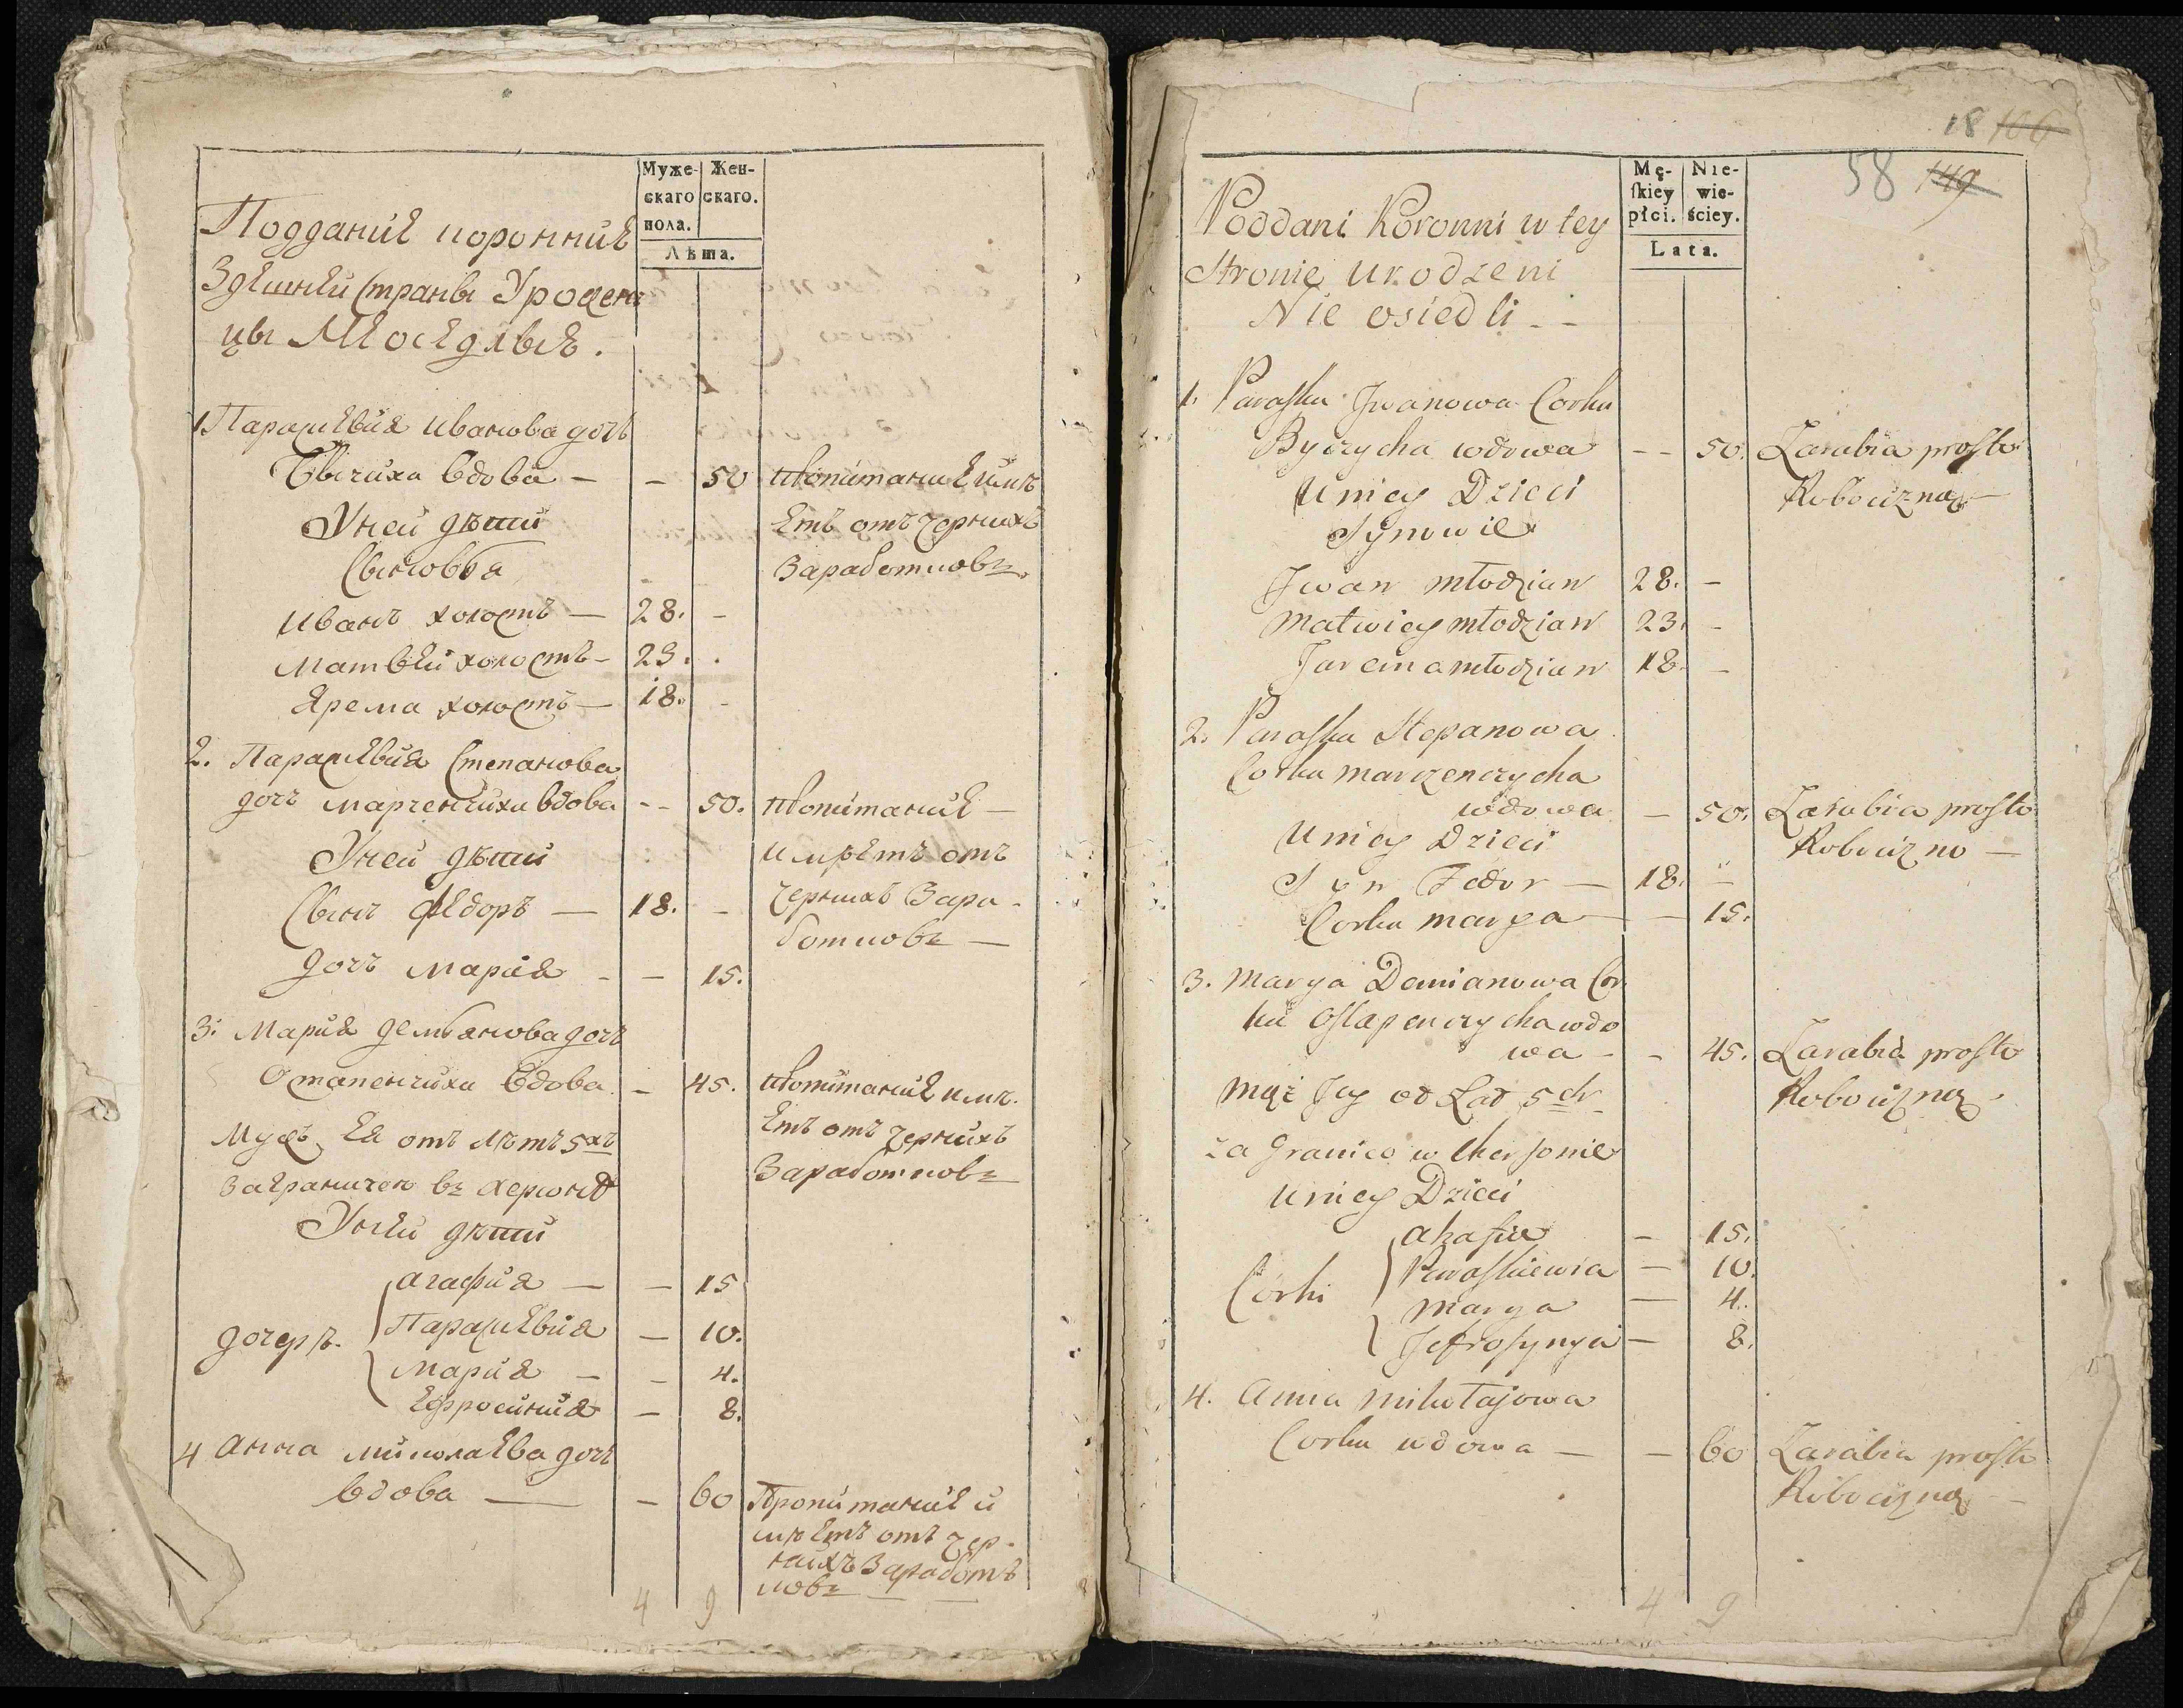 Муже-
скаго
пола.
Жен-
скаго.
Лѣта.
Подданиѣ короннiѣ
Здешнеи Страны Урожен
цы Неоседлые.
1 Параскевия иванова дочь
Бычиха вдова — — 50 пропитание имѣ
етъ отъ черныхъ
Заработковъ.
Унеи дѣти
Сыновья
иванъ холостъ — 28. -
матвеи холостъ - 23. .
Ярема холостъ — 18. -
2. Параскевия Степанова
дочъ марченчиха вдова -- 50. пропитание —
имѣетъ отъ
черныхъ Зара-
ботковъ —
Унеи дѣти
Сынъ федоръ — 18. -
дочъ мария - — 15.
3: Мария демьянова дочь
Остапенчиха вдова. — 45. пропитание имѣ.
етъ отъ черныхъ
Заработковъ
Мужъ Ея отъ лѣтъ 5хъ
Заграницею въ херсонѣ
Унеи дѣти
дочерѣ.
агафия — — 15
Параскевия — 10.
мария — - 4.
ефросиния — 8.
4 анна николаева дочь
вдова — — 60 Пропитание и
мѣетъ отъ чер-
ныхъ Заработъ
ковъ — —
4 9
18 106
58 149
Mę-
ſkiey
płci.
Nie-
wie-
ściey.
Lata.
Poddani Koronni w tey
Stronie urodzeni
Nie osiedli - -
1. Paraska Jwanowa Corka
Byczycha wdowa -- 50. Zarabia prosto
Robocizną —
U niey Dzieci
Synowie
Jwan młodzian 28. —
matwiey młodzian 23. -
Jarema młodzian 18. -
2. Paraska Stepanowa
Corka marczenczycha
wdowa — 50. Zarabia prosto
Robocizno —
U niey Dzieci
Syn Fedor — 18. —
Corka marya — — 15.
3. marya Demianowa Cor
ka ostapenczycha wdo
wa - - 45. Zarabia prosto
Robocizną
mąż Jey od Lat 5ch
za Granico w chersonie
U niey Dzieci
Corki
akafia — 15.
Paraskiewia — 10.
marya — 4.
Jefrosynya — 8.
4. anna mikołajowa
Corka wdowa — — 60 Zarabia prosto
Robocizną —
4 9